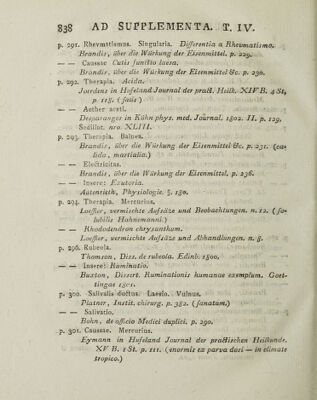 838 AD SUPPLEMENTA. T. IV.
p. 291. Rhevmatismus. Singularia. Differentia a Rheumatismo.
Brandis, über die Würkung der Eisenmittel. p. 229.
— — Caussae Cutis functio laesa.
Brandis, über die Würkung der Eisenmittel &c. p. 230.
p. 292. Therapia. Acida.
Joerdens in Hufeland Journal der pract. Heilk. XIV B. 4 St.
p 115. (salis)
— — Aether aceti.
Desparanges in Kühn phys. med. Journal. 1802. II. p. 129.
Sedillot. nro. XLIII.
p. 293. Therapia. Balnea.
Brandis, über die Würkung der Eisenmittel &c. p. 231. (calida, martialia.)
— — Electricitas.
Brandis, über die Würkung der Eisenmittel. p. 236.
— — Insere: Exutoria.
Autenrieth, Physiologie. §. 180.
p. 294. Therapia. Mercurius.
Loeffler, vermischte Aufsätze und Beobachtungen. n. 12. (solubilis Hahnemanni.)
— — Rhododendron chrysanthum.
Loeffler, vermischte Aufsätze und Abhandlungen. n. 8.
p. 296. Rubeola.
Thomson, Diss. de rubeola. Edinb. 1800.
— — Insere: Ruminatio.
Buxton, Dissert. Ruminationis humanae exemplum. Goettingae 1801.
p. 300. Salivalis ductus. Laesio. Vulnus.
Platner, Instit. chirurg. p. 352. (sanatum.)
— — Salivatio.
Bohn, de officio Medici duplici. p. 290.
p. 301. Caussae. Mercurius.
Eymann in Hufeland Journal der practischen Heilkunde.
XV B. 1 St. p. 111. (enormis ex parva dosi — in climate
tropico.)